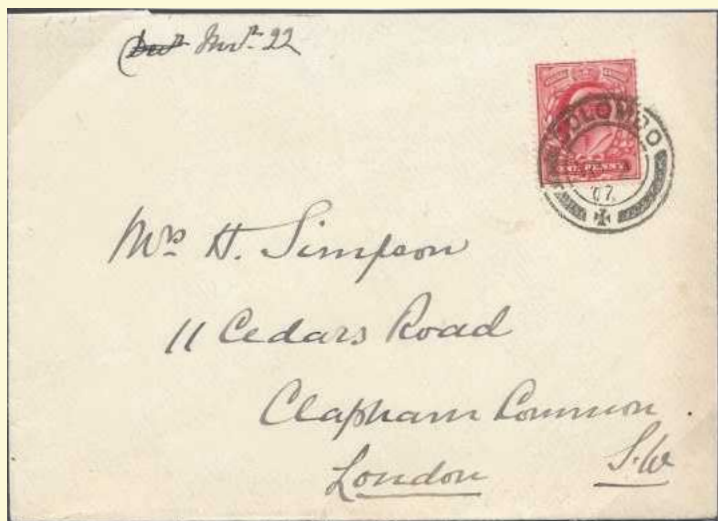 22
COLOMBO
ONE PENNY
07
Mrs H. Simpson
11 Cedars Road
Clapham Common.
London S.W